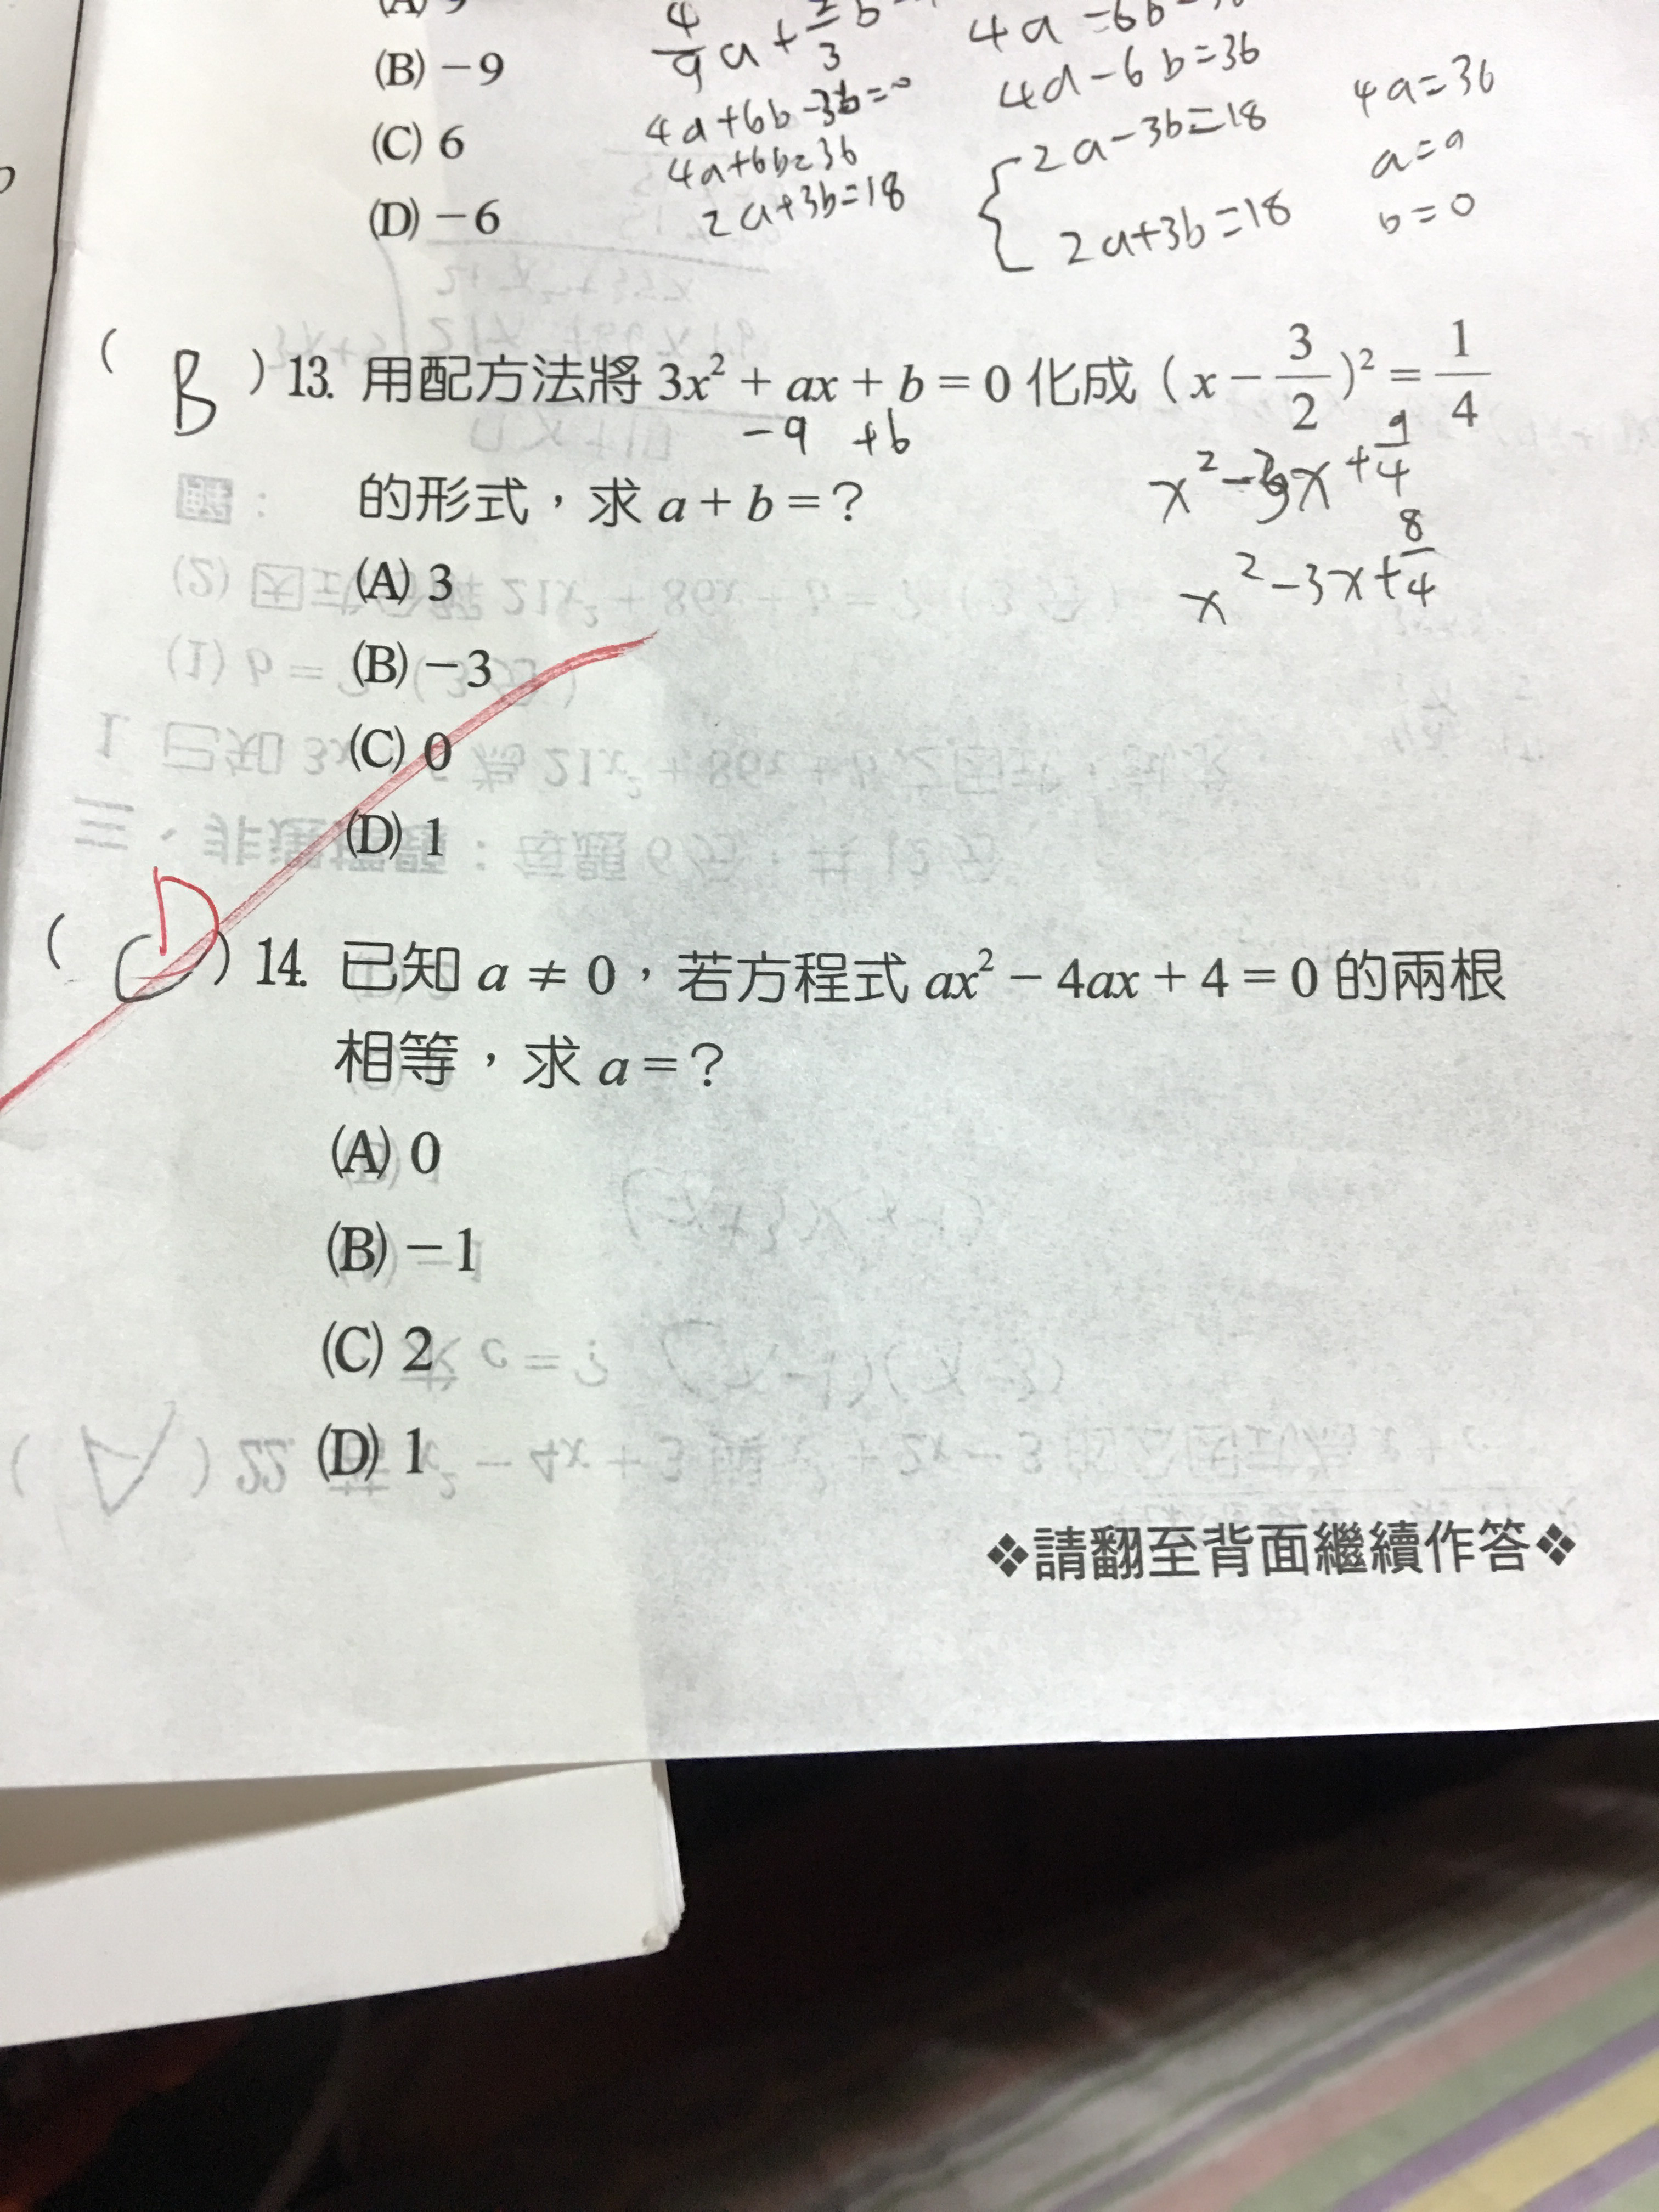 (B) －9
(C) 6
(D) －6
4a+6b-36=0
4a+6b=36
2a+3b=18
4a-6b=36
2a-3b=18
2a+3b=18
4a=36
a=9
b=0
( B ) 13. 用配方法將 3x² + ax + b = 0 化成 ( x － 3/2 )² = 1/4
-9 +6
的形式，求 a + b = ?
x²-3x+9/4
x²-3x+8/4
(A) 3
(B) －3
(C) 0
(D) 1
D
( C ) 14. 已知 a ≠ 0，若方程式 ax² － 4ax + 4 = 0 的兩根
相等，求 a = ?
(A) 0
(B) －1
(C) 2
(D) 1
❖請翻至背面繼續作答❖